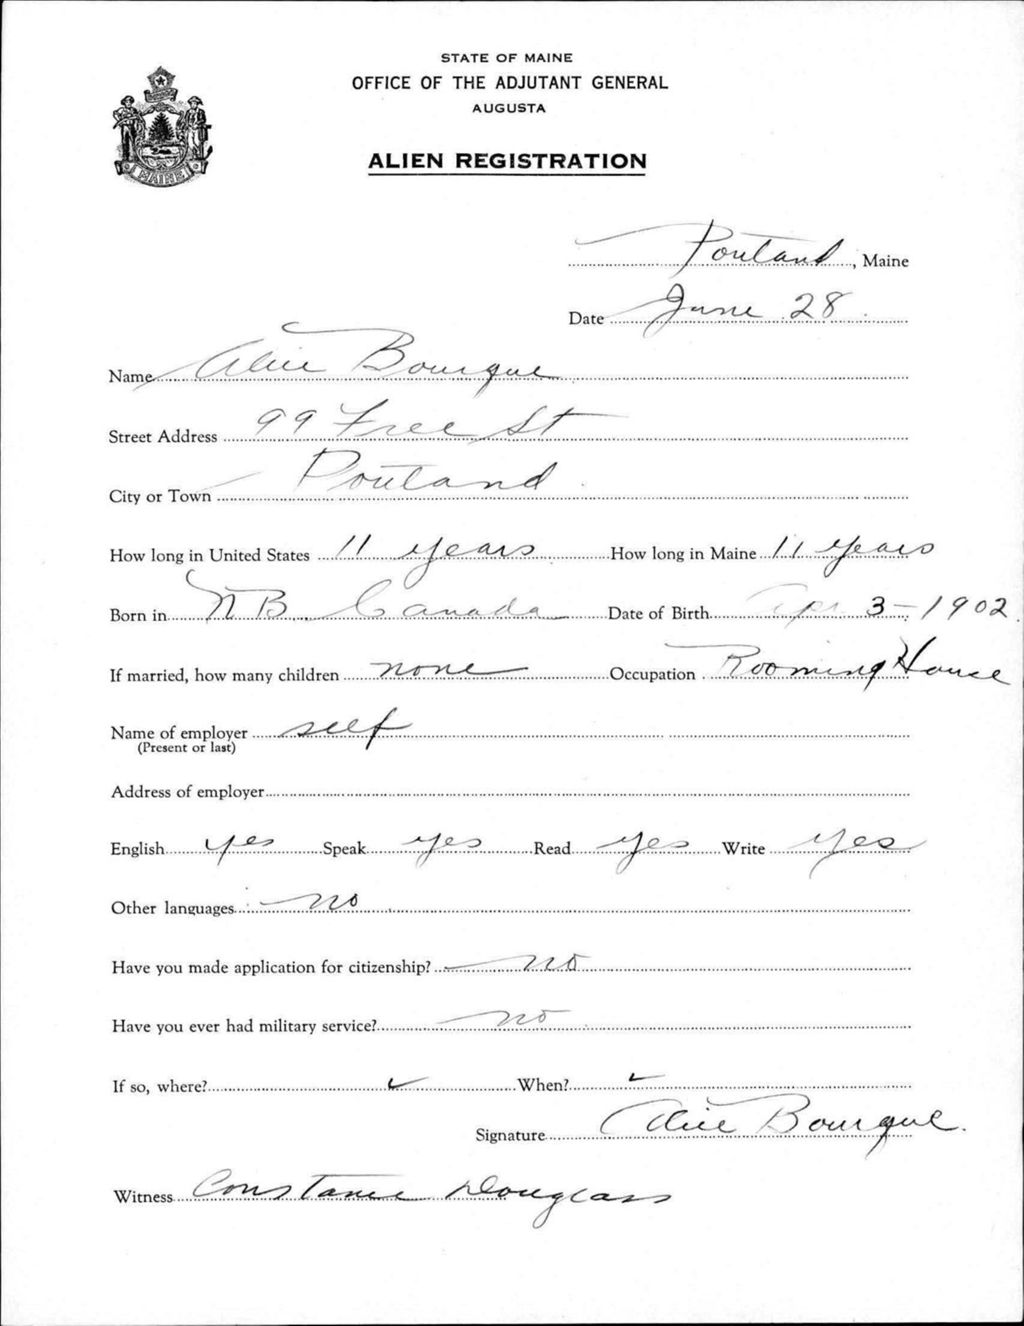 STATE OF MAINE
OFFICE OF THE ADJUTANT GENERAL
AUGUSTA
ALIEN REGISTRATION
MAINE
Portland, Maine
Date June 28
Name Alice Bourque
Street Address 99 Free St
City or Town Portland
How long in United States 11 years How long in Maine 11 years
Born in NB Canada Date of Birth Apr 3-1902
If married, how many children none Occupation Rooming House
Name of employer self
(Present or last)
Address of employer
English yes Speak yes Read yes Write yes
Other languages no
Have you made application for citizenship? no
Have you ever had military service? no
If so, where? ✓ When? ✓
Signature Alice Bourque.
Witness Constance Douglass